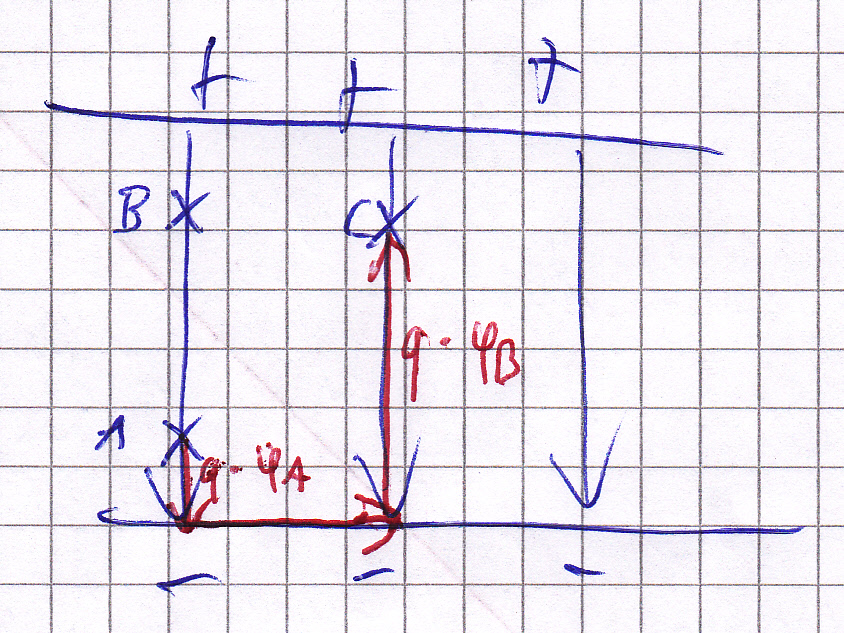 + + +
B C
q · φB
A q · φA
- - -